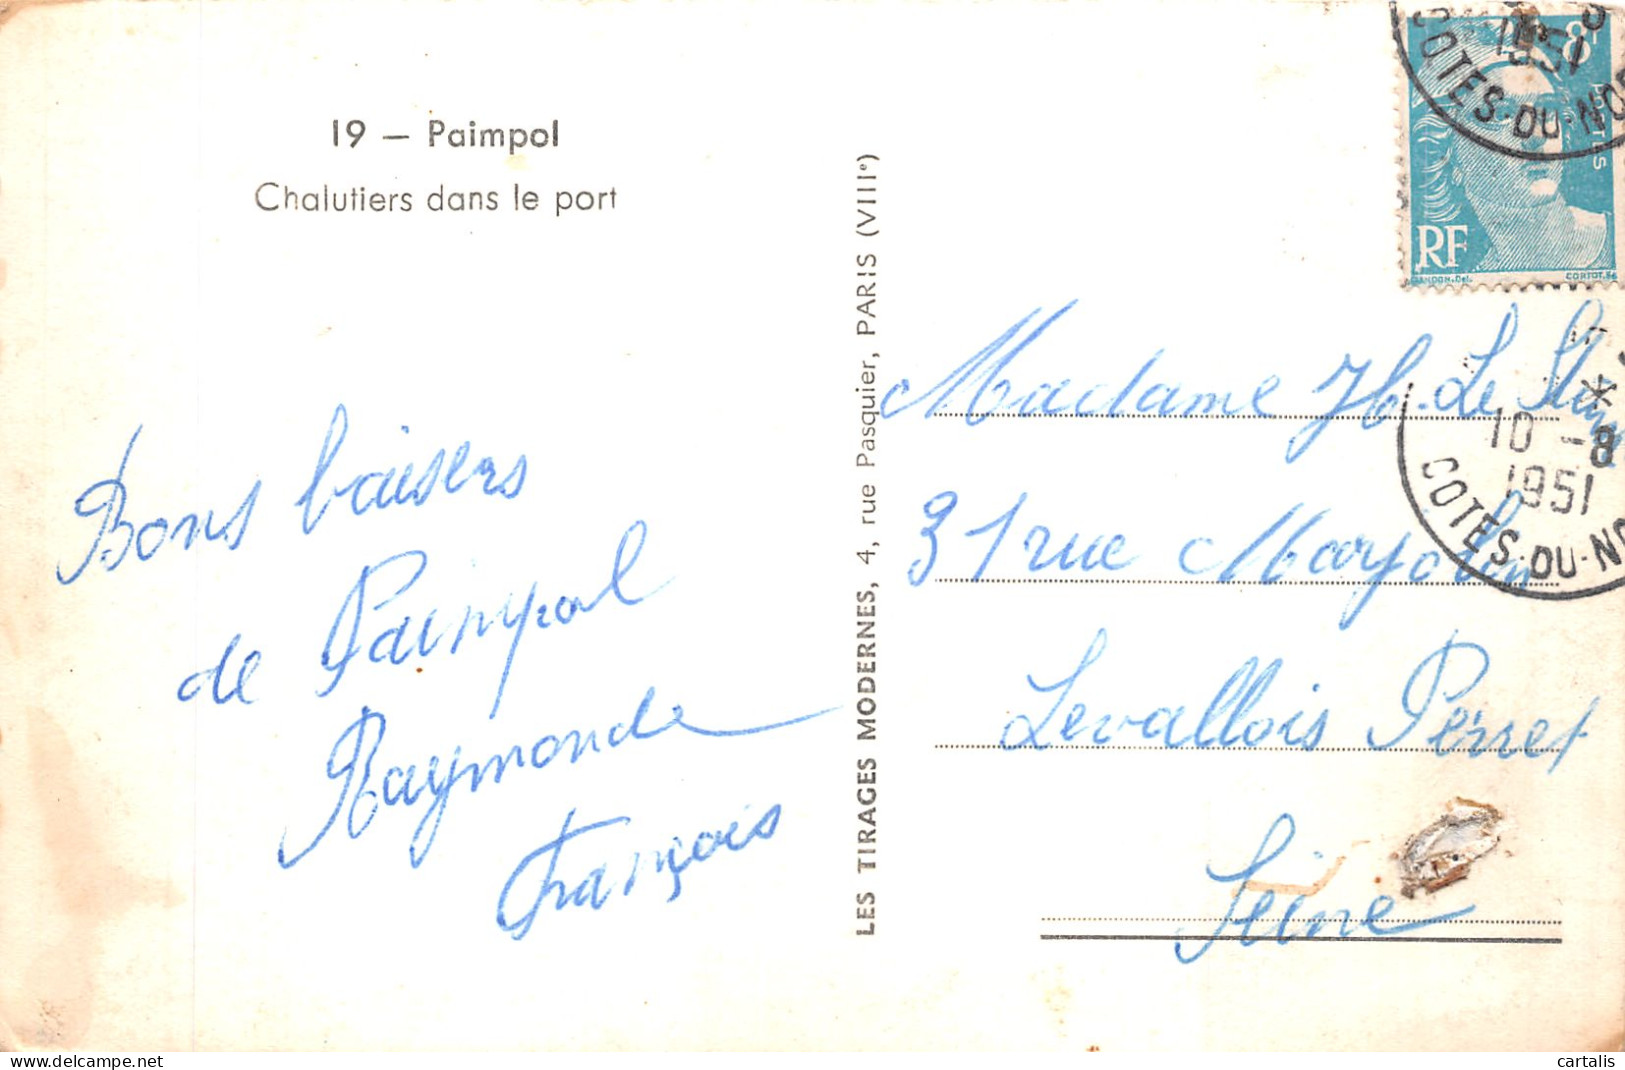 19 — Paimpol
Chalutiers dans le port
Bons baisers
de Paimpol
Raymonde
François
LES TIRAGES MODERNES, 4, rue Pasquier, PARIS (VIIIe)
8F
POSTES
RF
GANDON.Del.
CORTOT.
1951
COTES-DU-NO
Madame H. Le
31 rue Marjolin
Levallois Perret
Seine
10 -8
1951
COTES-DU-NO
delcampe.net
cartalis